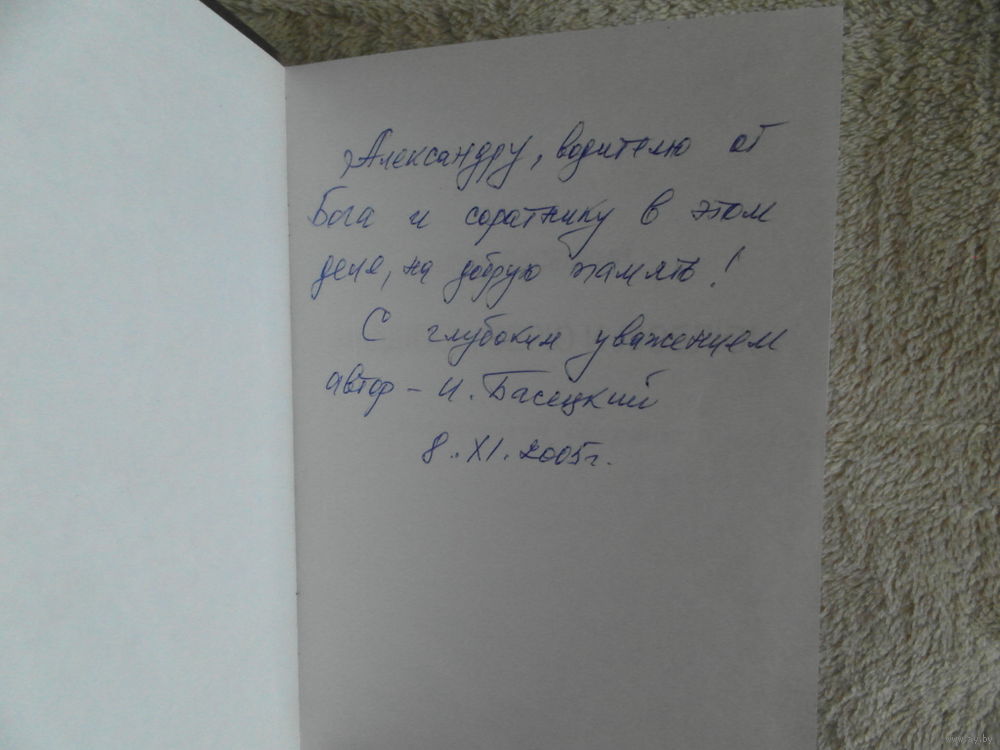 Александру, водителю от
Бога и соратнику в этом
деле, на добрую память!
С глубоким уважением
автор – И. Басецкий
8.XI.2005г.
www.ay.by